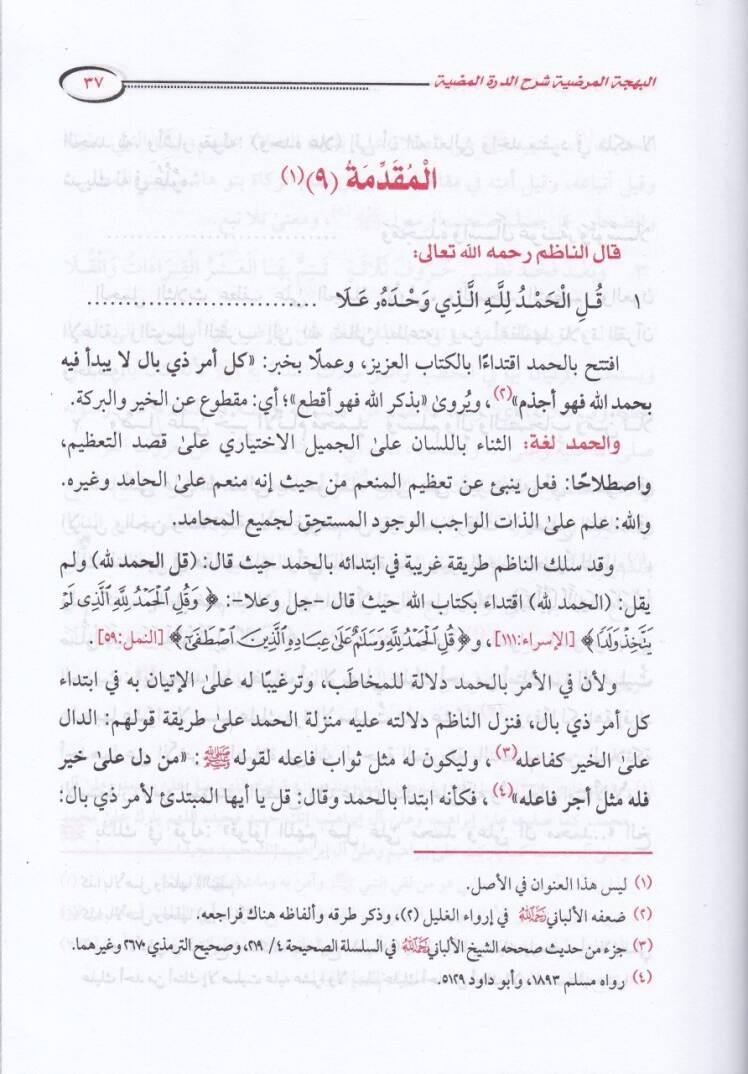 البهجة المرضية شرح الدرة المضية
٣٧
الْمُقَدِّمَةُ (٩)(١)
قال الناظم رحمه الله تعالى:
١ قُلِ الْحَمْدُ لِلَّهِ الَّذِي وَحْدَهُ عَلَا ..............................
افتتح بالحمد اقتداءًا بالكتاب العزيز، وعملًا بخبر: «كل أمر ذي بال لا يبدأ فيه
بحمد الله فهو أجذم»(٢)، ويُروىٰ «بذكر الله فهو أقطع»؛ أي: مقطوع عن الخير والبركة.
والحمد لغة: الثناء باللسان علىٰ الجميل الاختياري علىٰ قصد التعظيم،
واصطلاحًا: فعل ينبئ عن تعظيم المنعم من حيث إنه منعم علىٰ الحامد وغيره.
والله: علم علىٰ الذات الواجب الوجود المستحق لجميع المحامد.
وقد سلك الناظم طريقة غريبة في ابتدائه بالحمد حيث قال: (قل الحمد لله) ولم
يقل: (الحمد لله) اقتداء بكتاب الله حيث قال -جل وعلا-: ﴿ وَقُلِ الْحَمْدُ لِلَّهِ الَّذِى لَمْ
يَتَّخِذْ وَلَدًا ﴾ [الإسراء:١١١]، و﴿ قُلِ الْحَمْدُ لِلَّهِ وَسَلَامٌ عَلَىٰ عِبَادِهِ الَّذِينَ اصْطَفَىٰٓ ﴾ [النمل:٥٩].
ولأن في الأمر بالحمد دلالة للمخاطَب، وترغيبًا له علىٰ الإتيان به في ابتداء
كل أمر ذي بال، فنزل الناظم دلالته عليه منزلة الحمد علىٰ طريقة قولهم: الدال
علىٰ الخير كفاعله(٣)، وليكون له مثل ثواب فاعله لقوله ﷺ: «من دل علىٰ خير
فله مثل أجر فاعله»(٤)، فكأنه ابتدأ بالحمد وقال: قل يا أيها المبتدئ لأمر ذي بال:
(١) ليس هذا العنوان في الأصل.
(٢) ضعفه الألباني رَحِمَهُ اللهُ في إرواء الغليل (٢)، وذكر طرقه وألفاظه هناك فراجعه.
(٣) جزء من حديث صححه الشيخ الألباني رَحِمَهُ اللهُ في السلسلة الصحيحة ٤/ ٢١٩، وصحيح الترمذي ٢٦٧٠ وغيرهما.
(٤) رواه مسلم ١٨٩٣، وأبو داود ٥١٢٩.